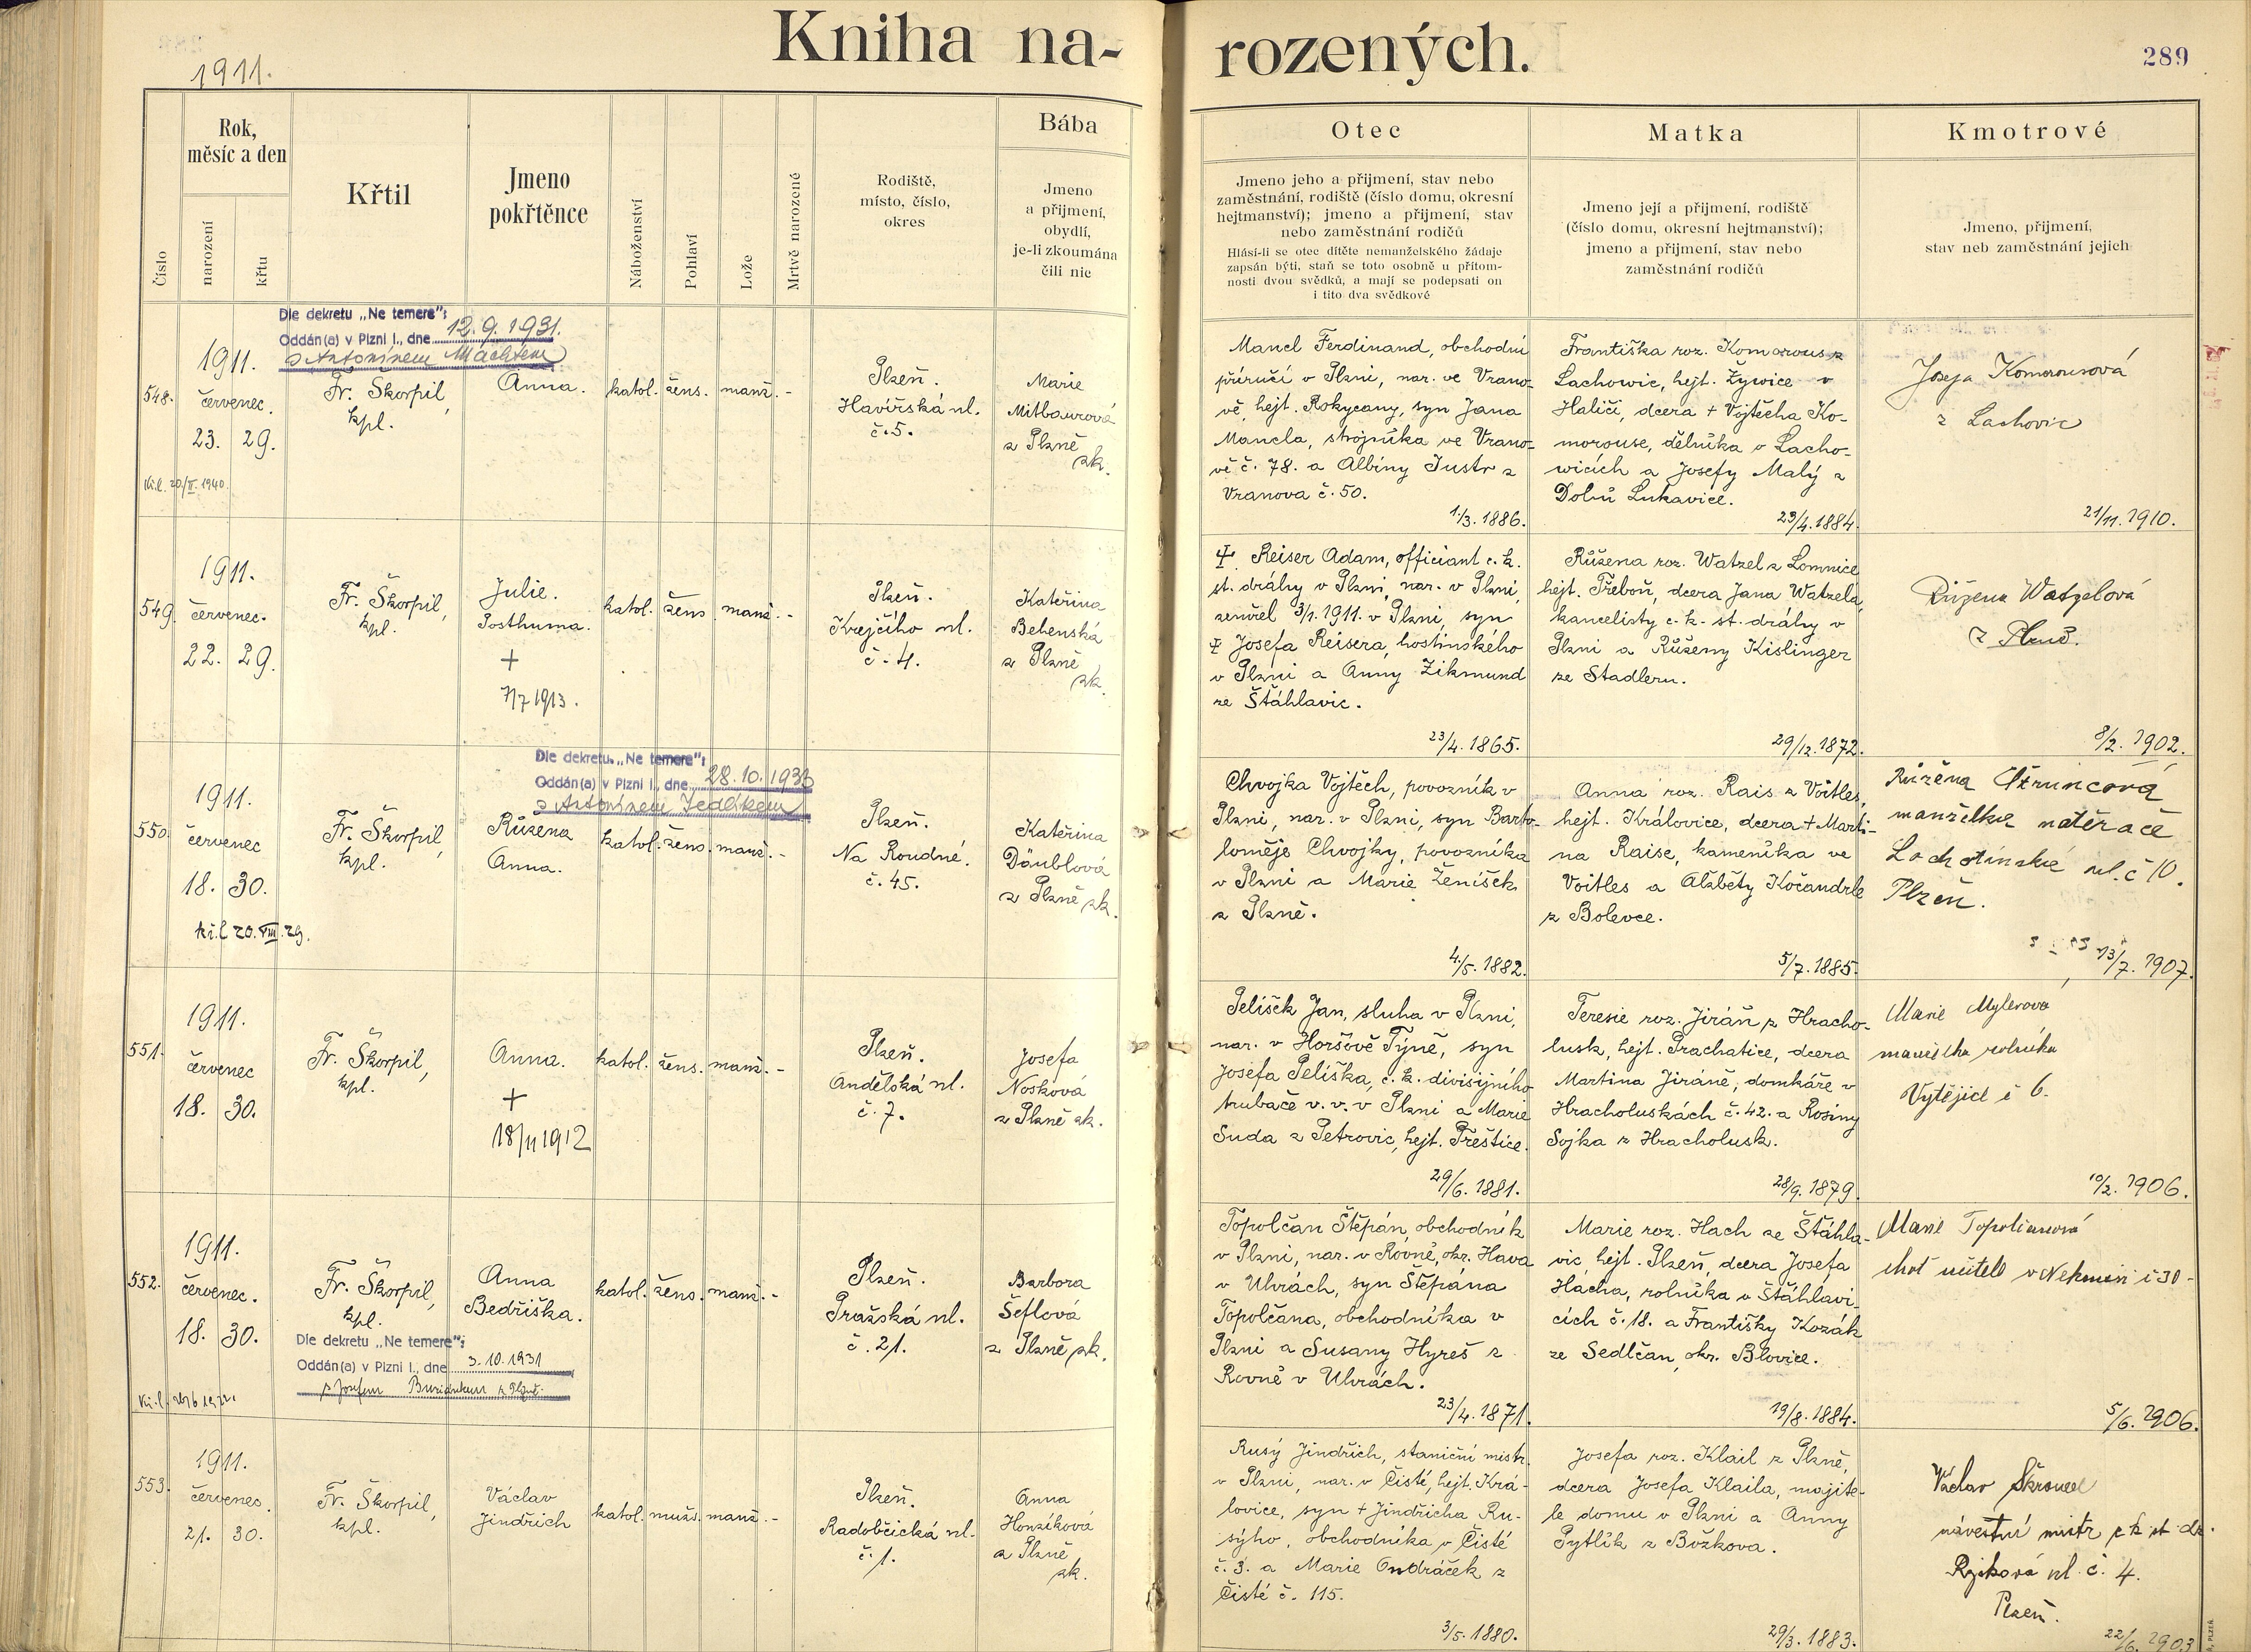 Kniha na-
rozených.
289
1911.
Číslo
Rok,
měsíc a den
narození
křtu
Křtil
Jmeno
pokřtěnce
Náboženství
Pohlaví
Lože
Mrtvě narozené
Rodiště,
místo, číslo,
okres
Bába
Jmeno
a přijmení,
obydlí,
je-li zkoumána
čili nic
Otec
Jmeno jeho a přijmení, stav nebo
zaměstnání, rodiště (číslo domu, okresní
hejtmanství); jmeno a přijmení, stav
nebo zaměstnání rodičů
Hlásí-li se otec dítěte nemanželského žádaje
zapsán býti, staň se toto osobně u přítom-
nosti dvou svědků, a mají se podepsati on
i tito dva svědkové
Matka
Jmeno její a přijmení, rodiště
(číslo domu, okresní hejtmanství);
jmeno a přijmení, stav nebo
zaměstnání rodičů
Kmotrové
Jmeno, přijmení,
stav neb zaměstnání jejich
Dle dekretu „Ne temere":
Oddán(a) v Plzni I., dne 12.9.1931.
s Antonínem Machtem
548.
1911.
červenec.
23. 29.
Fr. Škorpil,
kpl.
Anna.
katol. žens. manž. -
Plzeň.
Havířská ul.
č. 5.
Marie
Mitbaurová
z Plzně
zk.
Mancl Ferdinand, obchodní
příručí v Plzni, nar. ve Vrano-
vě, hejt. Rokycany, syn Jana
Mancla, strojníka ve Vrano-
vě č. 78. a Albíny Justr z
Vranova č. 50.
1./3. 1886.
Františka roz. Komorous z
Lachowic, hejt. Żywice v
Haliči, dcera + Vojtěcha Ko-
morouse, dělníka v Lacho-
wicích a Josefy Malý z
Dolní Lukavice.
23/4. 1884.
Josefa Komorousová
z Lachovic
21/11. 1910.
549.
1911.
červenec.
22. 29.
Fr. Škorpil,
kpl.
Julie.
Posthuma.
+
7/7 1913.
katol. žens. manž. -
Plzeň.
Krejčího ul.
č. 4.
Kateřina
Behenská
z Plzně
zk.
+. Reiser Adam, officiant c. k.
st. dráhy v Plzni, nar. v Plzni,
zemřel 3/1. 1911. v Plzni, syn
+ Josefa Reisera, hostinského
v Plzni a Anny Zikmund
ze Štáhlavic.
23/4. 1865.
Růžena roz. Watzel z Lomnice
hejt. Třeboň, dcera Jana Watzela,
kancelisty c. k. st. dráhy v
Plzni a Růženy Kislinger
ze Stadlern.
29/12. 1872.
Růžena Watzelová
z Plzně.
8/2. 1902.
Dle dekretu „Ne temere":
Oddán(a) v Plzni I., dne 28.10.1933
s Antonínem Jedlikem
550.
1911.
červenec
18. 30.
kř.l. 20. VIII. 29.
Fr. Škorpil,
kpl.
Růžena
Anna.
katol. žens. manž. -
Plzeň.
Na Roudné.
č. 45.
Kateřina
Däublová
z Plzně zk.
Chvojka Vojtěch, povozník v
Plzni, nar. v Plzni, syn Barto-
loměje Chvojky, povozníka
v Plzni a Marie Ženíšek
z Plzně.
4./5. 1882.
Anna roz. Rais z Voitles,
hejt. Královice, dcera + Marti-
na Raise, kameníka ve
Voitles a Alžběty Kočandrle
z Bolevce.
5/7. 1885.
Růžena
manželka natěrače
Lochotínská ul. č 10.
Plzeň.
13/7. 1907.
551.
1911.
červenec
18. 30.
Fr. Škorpil,
kpl.
Anna.
+
18/11 1912
katol. žens. manž. -
Plzeň.
Andělská ul.
č. 7.
Josefa
Nosková
z Plzně zk.
Pelíšek Jan, sluha v Plzni,
nar. v Horšově Týně, syn
Josefa Pelíška, c. k. divisijního
trubače v. v. v Plzni a Marie
Suda z Petrovic, hejt. Přeštice.
29/6. 1881.
Teresie roz. Jiráň z Hracho-
lusk, hejt. Prachatice, dcera
Martina Jiráně, domkáře v
Hracholuskách č. 42. a Rosiny
Sojka z Hracholusk.
28/9. 1879.
Marie Mylerová
manželka rolníka
Vytějice č 6.
10/2. 1906.
552.
1911.
červenec.
18. 30.
Fr. Škorpil,
kpl.
Anna
Bedřiška.
katol. žens. manž. -
Plzeň.
Pražská ul.
č. 21.
Barbora
Šeflová
z Plzně zk.
Dle dekretu „Ne temere":
Oddán(a) v Plzni I., dne 3.10.1931
s Josefem Buriánkem z Plzně.
Topolčan Štěpán, obchodník
v Plzni, nar. v Rovně, okr. Hava
v Uhrách, syn Štěpána
Topolčana, obchodníka v
Plzni a Susany Hyreš z
Rovně v Uhrách.
23/4. 1871.
Marie roz. Hach ze Štáhla-
vic, hejt. Plzeň, dcera Josefa
Hacha, rolníka v Štáhlavi-
cích č. 18. a Františky Kozák
ze Sedlčan, okr. Blovice.
19/8. 1884.
Marie Topolčanová
choť učitele v Nekmíři č 30-
5/6. 1906.
553.
1911.
červenec.
21. 30.
Fr. Škorpil,
kpl.
Václav
Jindřich
katol. mužs. manž. -
Plzeň.
Radobčická ul.
č. 1.
Anna
Honzíková
z Plzně
zk.
Rusý Jindřich, staniční mistr
v Plzni, nar. v Čisté, hejt. Krá-
lovice, syn + Jindřicha Ru-
sýho, obchodníka v Čisté
č. 3. a Marie Ondráček z
Čisté č. 115.
3/5. 1880.
Josefa roz. Klail z Plzně,
dcera Josefa Klaila, majite-
le domu v Plzni a Anny
Pytlík z Božkova.
29/3. 1883.
Václav
návěstní mistr c k st dr.
ul. č. 4.
Plzeň.
22/6. 1903